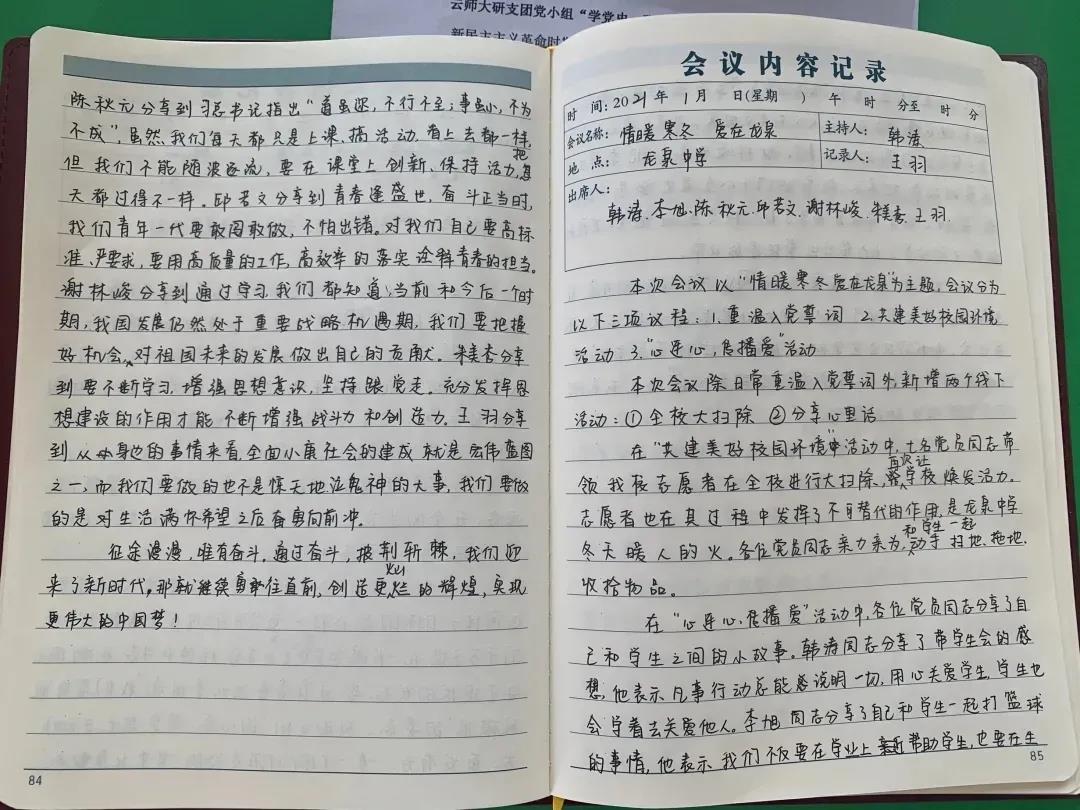 云师大研支团党小组“学党史、
新民主主义革命时
陈秋元分享到习总书记指出“道虽迩，不行不至；事虽小，不为
不成”，虽然我们每天都只是上课、搞活动，看上去都一样，
但我们不能随波逐流，要在课堂上创新、保持活力，把每
天都过得不一样。邱若文分享到青春逢盛世，奋斗正当时，
我们青年一代要敢闯敢做，不怕出错。对我们自己要高标
准、严要求，要用高质量的工作，高效率的落实诠释青春的担当。
谢林峻分享到通过学习我们都知道，当前和今后一个时
期，我国发展仍然处于重要战略机遇期，我们要把握
好机会，对祖国未来的发展做出自己的贡献。分享
到要不断学习，增强思想意识，坚持跟党走。充分发挥思
想建设的作用才能不断增强战斗力和创造力。王羽分享
到从身边的事情来看，全面小康社会的建成就是宏伟蓝图
之一，而我们要做的也不是惊天地泣鬼神的大事，我们要做
的是对生活满怀希望之后奋勇向前冲。
征途漫漫，唯有奋斗。通过奋斗，披荆斩棘，我们迎
来了新时代。那就继续勇敢往直前，创造更灿烂的辉煌，实现
更伟大的中国梦！
84
会议内容记录
时 间：2021年 1月 日(星期 ) 午 时 分至 时 分
会议名称：情暖寒冬 爱在龙泉 主持人：韩涛
地 点：龙泉中学 记录人：王羽
出席人：
韩涛、李旭、陈秋元、邱若文、谢林峻、王羽.
本次会议以“情暖寒冬爱在龙泉”为主题，会议分为
以下三项议程：1.重温入党誓词 2.共建美好校园环境
活动 3.“心连心，传播爱”活动
本次会议除日常重温入党誓词外，新增两个线下
活动：①全校大扫除 ②分享心里话
在“共建美好校园环境”活动中，七名党员同志带
领我校志愿者在全校进行大扫除，再次让学校焕发活力。
志愿者也在其过程中发挥了不可替代的作用，是龙泉中学
冬天暖人的火。各位党员同志亲力亲为，和学生一起动手扫地、拖地、
收拾物品。
在“心连心，传播爱”活动中，各位党员同志分享了自
己和学生之间的小故事。韩涛同志分享了带学生会的感
想，他表示凡事行动总能说明一切，用心关爱学生，学生也
会学着去关爱他人。李旭同志分享了自己和学生一起打篮球
的事情，他表示我们不仅要在学业上帮助学生，也要在生
85